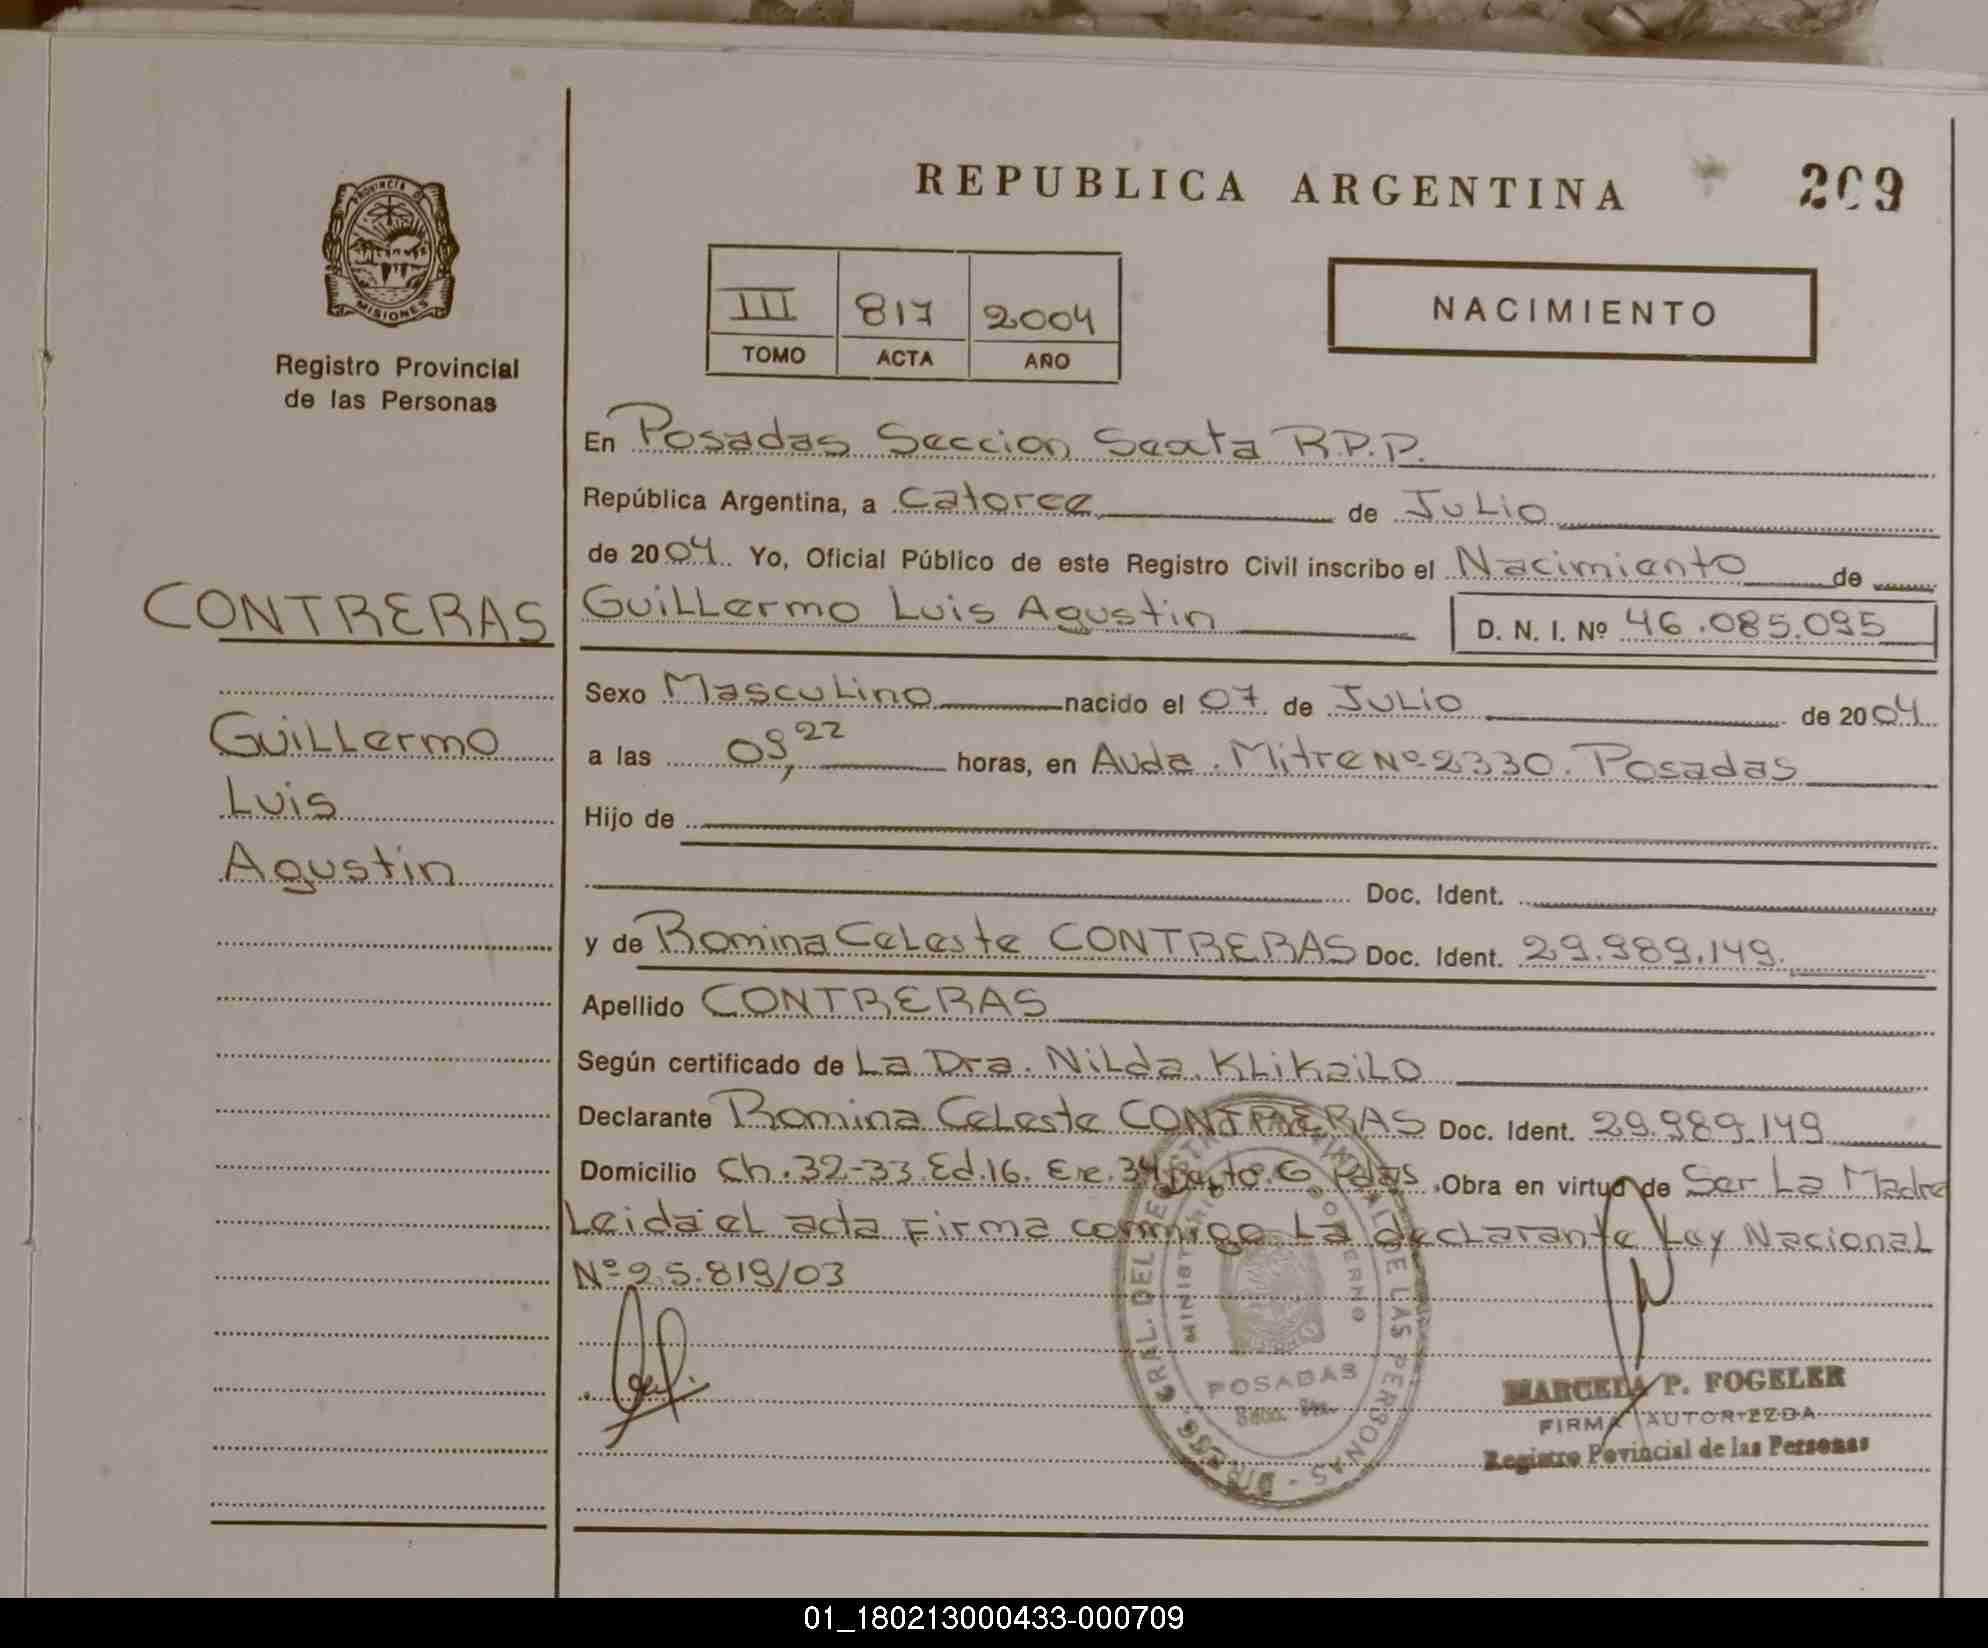 REPUBLICA ARGENTINA
209
PROVINCIA DE
MISIONES
Registro Provincial
de las Personas
III 817 2004
TOMO ACTA AÑO
NACIMIENTO
En Posadas Seccion Sexta R.P.P.
República Argentina, a Catorce de Julio
de 2004. Yo, Oficial Público de este Registro Civil inscribo el Nacimiento de
CONTRERAS
Guillermo Luis Agustin
D. N. I. Nº 46.085.095
Sexo Masculino nacido el 07 de Julio de 2004
Guillermo
Luis
Agustin
a las 09,22 horas, en Avda. Mitre Nº 2330. Posadas
Hijo de
Doc. Ident.
y de Romina Celeste CONTRERAS Doc. Ident. 29.989.149.
Apellido CONTRERAS
Según certificado de La Dra. Nilda. Klikailo
Declarante Romina Celeste CONTRERAS Doc. Ident. 29.989.149
Domicilio Ch. 32-33. Ed. 16. Ere. 34 G Pdas. Obra en virtud de Ser La Madre
Leida el acta Firma conmigo La declarante Ley Nacional
Nº 25.819/03
GRAL. DEL DE LAS PERSONAS
MINISTERIO GOBIERNO
POSADAS
MARCELA P. FOGELER
FIRMA AUTORIZZDA
Registro Povincial de las Personas
01_180213000433-000709